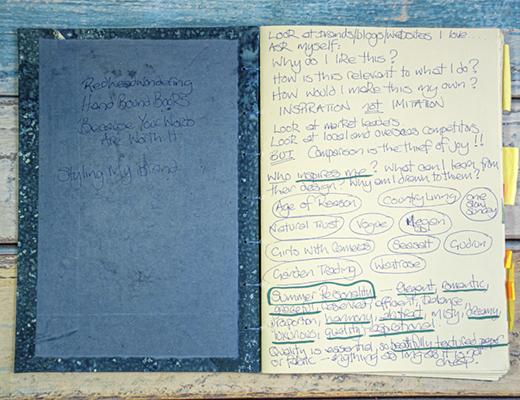 Hand Bound Books
Because Your Words
Are Worth It
Styling My Brand
Look at brands/blogs/websites I love....
Ask myself:
Why do I like this?
How is this relevant to what I do?
How would I make this my own?
INSPIRATION not IMITATION
Look at market leaders
Look at local and overseas competitors
BUT Comparison is the thief of Joy!!
Who inspires me? What can I learn from
their design? Why am I drawn to them?
Age of Reason
Country Living
one
Sunday
Natural Trust
Vogue
Megan
Girls with Cameras
Seasalt
Gudrun
Garden Trading
Waitrose
Summer Personality - Elegant, romantic,
graceful, reserved, efficient, balance
proportion, harmony, abstract, misty, dreamy,
luxurious, quality, aspirational.
Quality is essential, so beautifully textured paper
or fabric - anything as long as it is not
cheap.